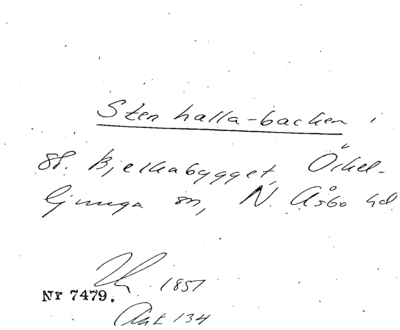 Stenhalla-backen i
88. Bjelkabygget, Örkel-
ljunga sn, N. Åsbo hd.
1851
Nr 7479.
Akt 134